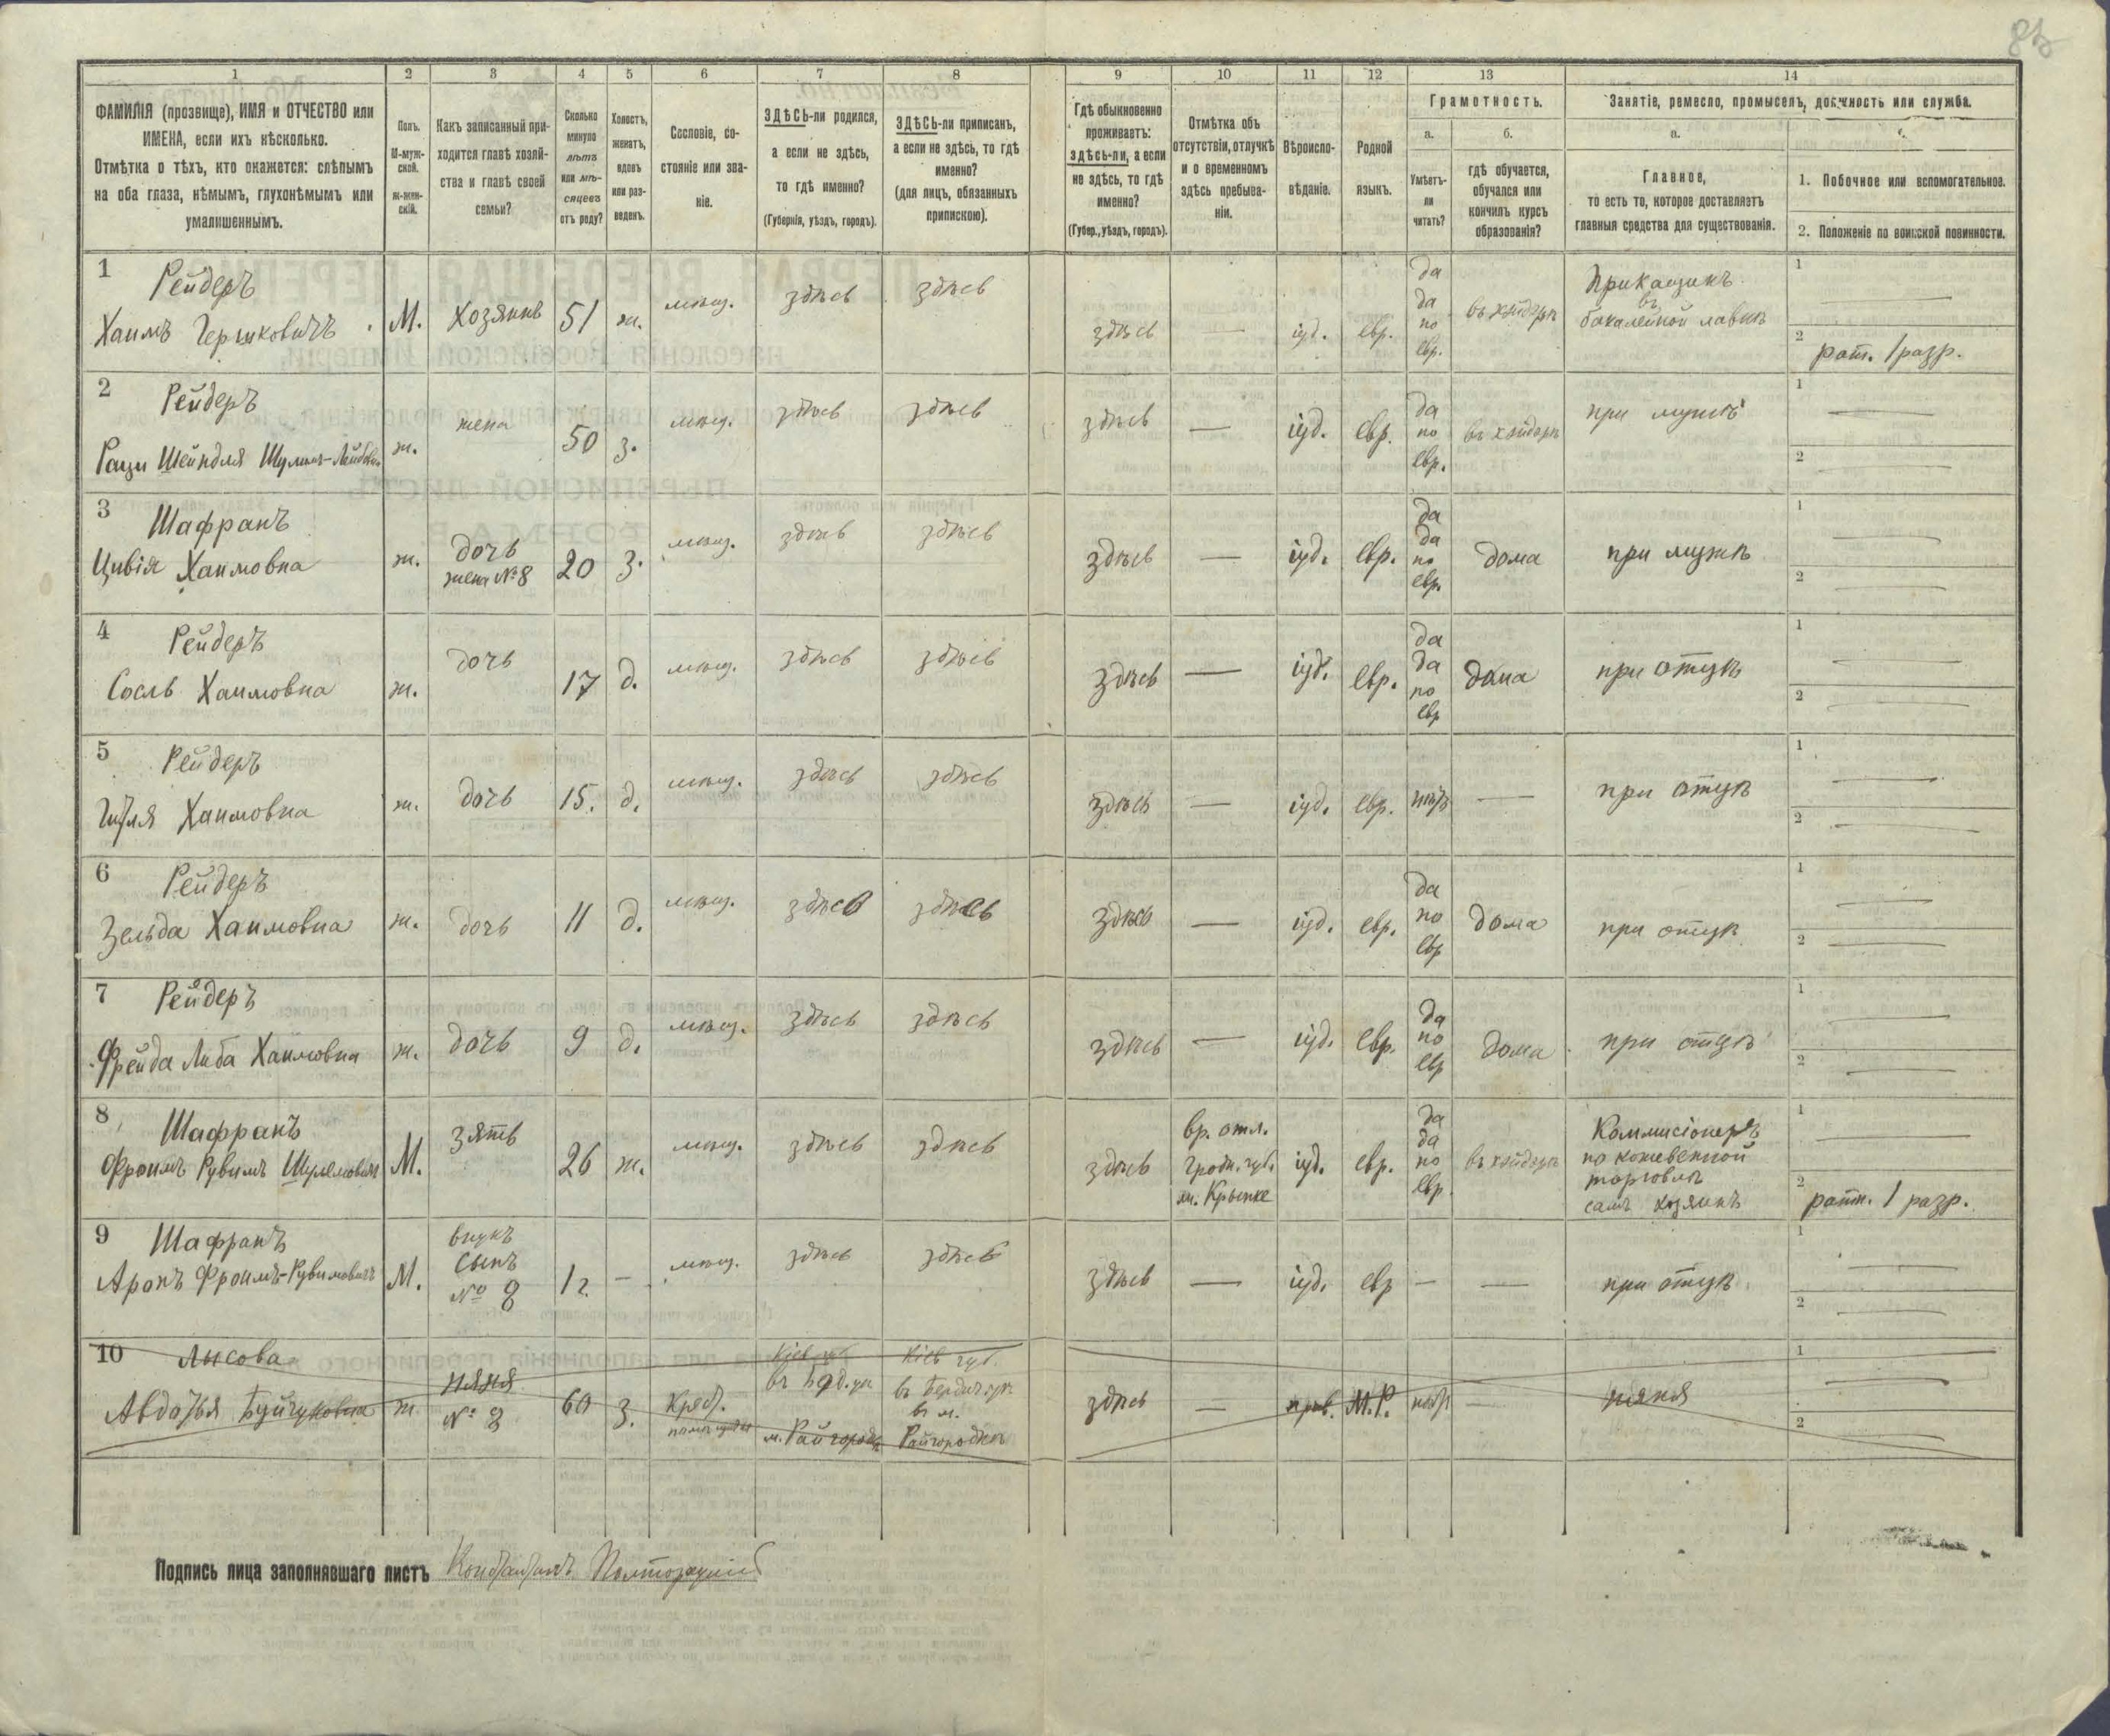 1 2 3 4 5 6 7 8 9 10 11 12 13 14
ФАМИЛІЯ (прозвище), ИМЯ и ОТЧЕСТВО или
ИМЕНА, если ихъ нѣсколько.
Отмѣтка о тѣхъ, кто окажется: слѣпымъ
на оба глаза, нѣмымъ, глухонѣмымъ или
умалишеннымъ.
Полъ.
М-муж-
ской.
ж-жен-
скій.
Какъ записанный при-
ходится главѣ хозяй-
ства и главѣ своей
семьи?
Сколько
минуло
лѣтъ
или мѣ-
сяцевъ
отъ роду?
Холостъ,
женатъ,
вдовъ
или раз-
веденъ.
Сословіе, со-
стояніе или зва-
ніе.
ЗДѢСЬ-ли родился,
а если не здѣсь,
то гдѣ именно?
(Губернія, уѣздъ, городъ).
ЗДѢСЬ-ли приписанъ,
а если не здѣсь, то гдѣ
именно?
(для лицъ, обязанныхъ
припискою).
Гдѣ обыкновенно
проживаетъ:
здѣсь-ли, а если
не здѣсь, то гдѣ
именно?
(Губер., уѣздъ, городъ).
Отмѣтка объ
отсутствіи, отлучкѣ
и о временномъ
здѣсь пребыва-
ніи.
Вѣроиспо-
вѣданіе.
Родной
языкъ.
Грамотность.
а.
Умѣетъ-
ли
читать?
б.
гдѣ обучается,
обучался или
кончилъ курсъ
образованія?
Занятіе, ремесло, промыселъ, должность или служба.
а.
Главное,
то есть то, которое доставляетъ
главныя средства для существованія.
1. Побочное или вспомогательное.
2. Положеніе по воинской повинности.
1 Рейдеръ
Хаимъ Гершковичъ М. хозяинъ 51 ж. мѣщ. здѣсь здѣсь здѣсь — іуд. евр. да да по евр. въ хэйдерѣ
Прикащикъ
въ
бакалейной лавкѣ
1 —
2 ратн. 1 разр.
2 Рейдеръ
Шейндля ж. жена 50 з. мѣщ. здѣсь здѣсь здѣсь — іуд. евр. да по евр. въ хэйдерѣ при мужѣ
1 —
2 —
3 Шафранъ
Цивія Хаимовна ж. дочь жена №8 20 з. мѣщ. здѣсь здѣсь здѣсь — іуд. евр. да да по евр. дома при мужѣ
1 —
2 —
4 Рейдеръ
Сосль Хаимовна ж. дочь 17 д. мѣщ. здѣсь здѣсь здѣсь — іуд. евр. да да по евр дома при отцѣ
1 —
2 —
5 Рейдеръ
Хаимовна ж. дочь 15. д. мѣщ. здѣсь здѣсь здѣсь — іуд. евр. нѣтъ — при отцѣ
1 —
2 —
6 Рейдеръ
Зельда Хаимовна ж. дочь 11 д. мѣщ. здѣсь здѣсь здѣсь — іуд. евр. да по евр дома при отцѣ
1 —
2 —
7 Рейдеръ
Фрейда Либа Хаимовна ж. дочь 9 д. мѣщ. здѣсь здѣсь здѣсь — іуд. евр. да по евр дома при отцѣ
1 —
2 —
8 Шафранъ
Фроимъ Рувимъ Шулемовичъ М. зять 26 ж. мѣщ. здѣсь здѣсь здѣсь
вр. отл.
Гродн. губ.
м. Крынке
іуд. евр. да да по евр. въ хэйдерѣ
Коммисіонеръ
по кожевенной
торговлѣ
самъ хозяинъ
1 —
2 ратн. 1 разр.
9 Шафранъ
Аронъ Фроимъ-Рувимовичъ М. внукъ сынъ № 8 1 г. — мѣщ. здѣсь здѣсь здѣсь — іуд. евр — — при отцѣ
1 —
2 —
10 Лысова
Авдотья ж няня № 8 60 з. крест.
Кіев губ
м. Райгородк
Кіев губ.
въ Бердич. уѣ
въ м.
Райгородкѣ
здѣсь — прав. М.Р. нѣтъ — няня
1 —
2 —
Подпись лица заполнявшаго листъ Константинъ Полторацкій